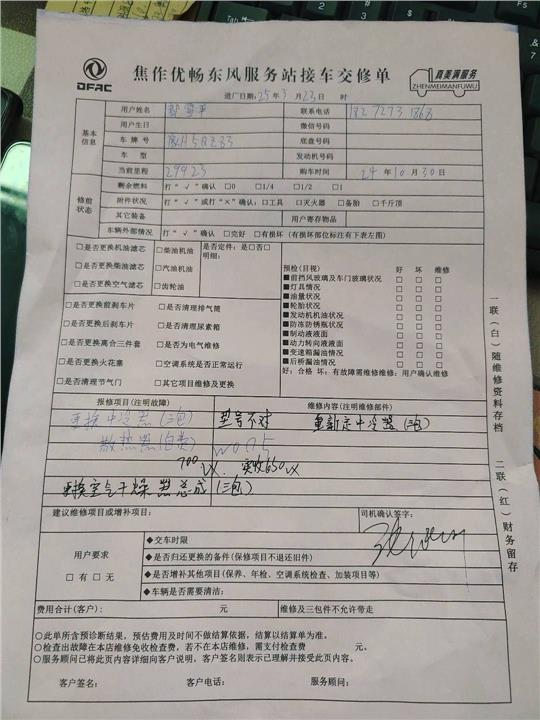 DFAC
焦作优畅东风服务站接车交修单
真美满服务
ZHENMEIMANFUWU
进厂日期:25年3月23日 时
基本信息
用户姓名
联系电话 182 7273 1868
用户生日 微信号码
车牌号 底盘号码
车型 发动机号码
当前里程 29923 购车时间 24年10月30日
修前状态
剩余燃料 打“√”确认 □0 □1/4 □1/2 □1
附件状况 打“√”或打“×”确认:□工具 □灭火器 □备胎 □千斤顶
其它装备 用户寄存物品
车辆外部情况 打“√”确认 □完好 □有损坏(有损坏部位标注有下表左图)
□是否更换机油滤芯 □柴油机油 是否定件:是□否□
□是否更换柴油滤芯 □汽油机油 明细:
□是否更换空气滤芯 □齿轮油
预检(目视) 好 坏 维修
■前挡风玻璃及车门玻璃状况 □ □ □
■灯具情况 □ □ □
■油量状况 □ □ □
■轮胎状况 □ □ □
■发动机机油状况 □ □ □
■防冻防锈瓶状况 □ □ □
■制动液液面 □ □ □
■动力转向液液面 □ □ □
■变速箱漏油情况 □ □ □
■后桥漏油情况 □ □ □
好:合格 坏:有故障需维修维修:用户确认维修
□是否更换前刹车片 □是否清理排气筒
□是否更换后刹车片 □是否清理尿素箱
□是否更换离合三件套 □是否为电气维修
□是否更换火花塞 □空调系统是否正常运行
□是否清理节气门 □其它项目维修及更换
报修项目(注明故障) 维修内容(注明维修部件)
更换中冷器(三包) 型号不对 重新定中冷器(三包)
散热器(自费) W075
700 以 实收650以
更换空气干燥器总成(三包)
建议维修项目或增补项目: 司机确认签字:
用户要求
□有□无
◆交车时限
◆是否归还更换的备件(保修项目不退还旧件)
◆是否增补其他项目(保养、年检、空调系统检查、加装项目等)
◆车辆是否需要清洁:
费用合计(客户): 元 维修及三包件不允许带走
○此单所含预诊断结果,预估费用及时间不做结算依据,结算以结算单为准。
○检查出故障在本店维修免收检查费,若不在本店维修,需支付检查费 元。
○服务顾问已将此页内容详细向客户说明,客户签名则表示已理解并接受此页内容。
客户签名: 客户电话: 服务顾问:
一联(白)随维修资料存档
二联(红)财务留存